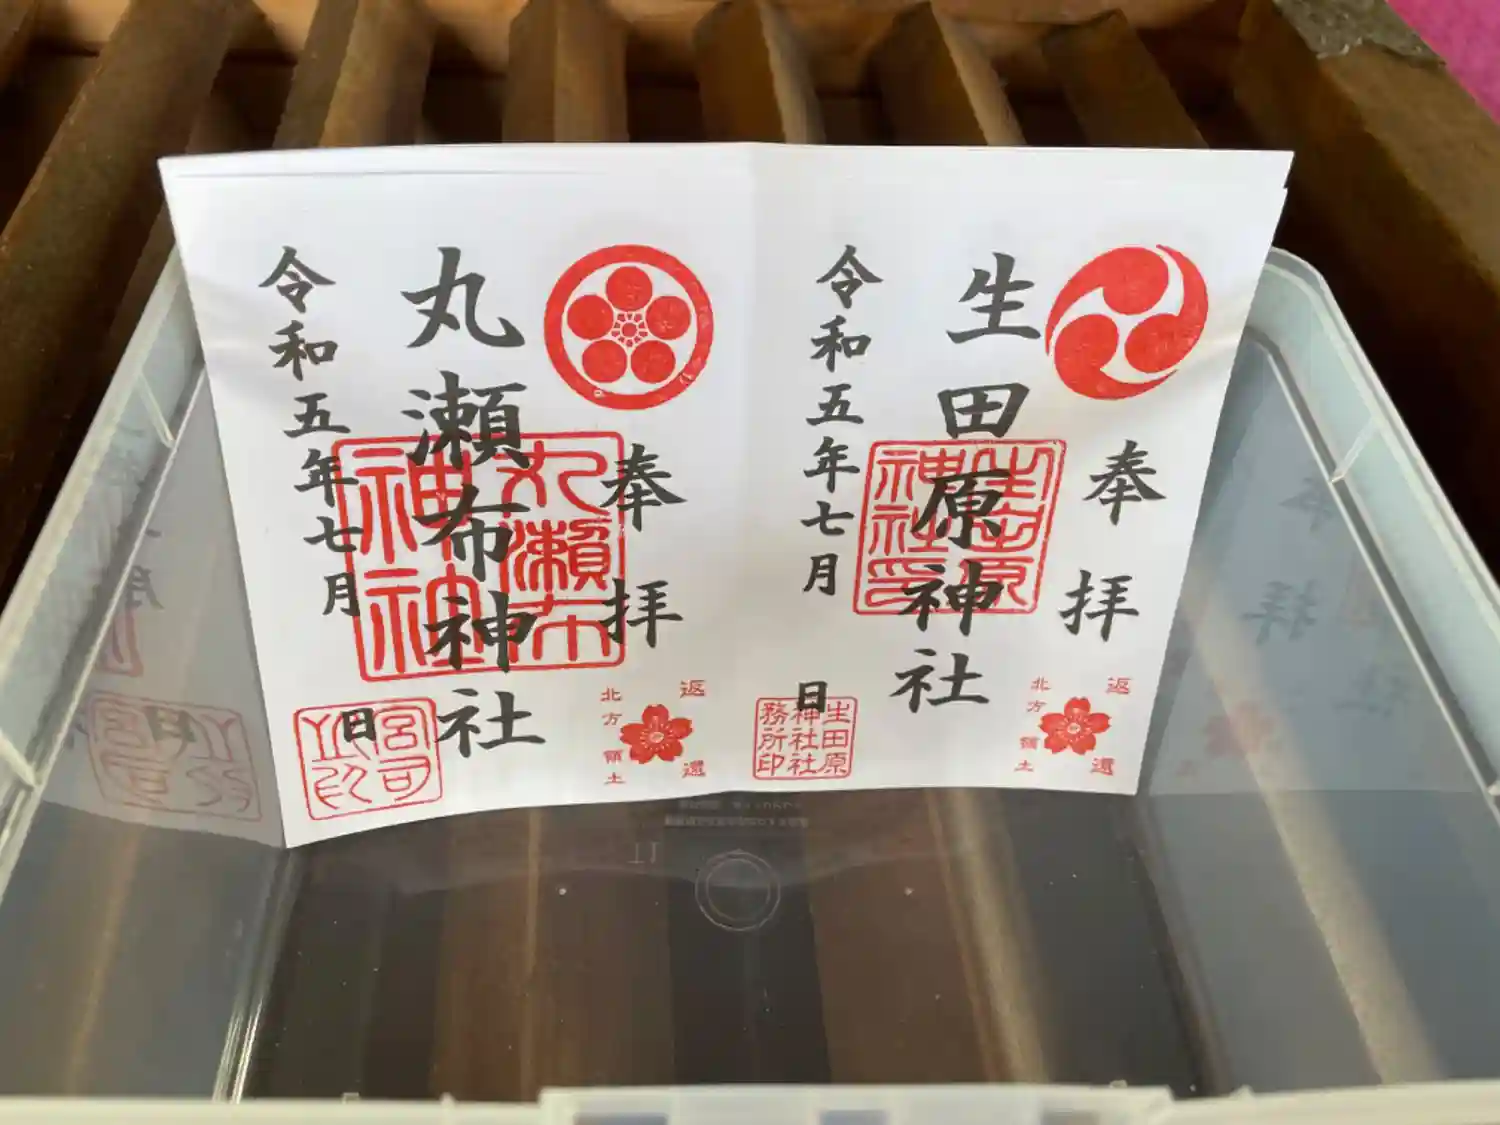 奉拝
生田原神社
生田原
神社印
令和五年七月
日
返還
北方領土
生田原
神社社
務所印
奉拝
丸瀬布神社
丸瀬布
神社
令和五年七月
日
返還
北方領土
宮司
之印